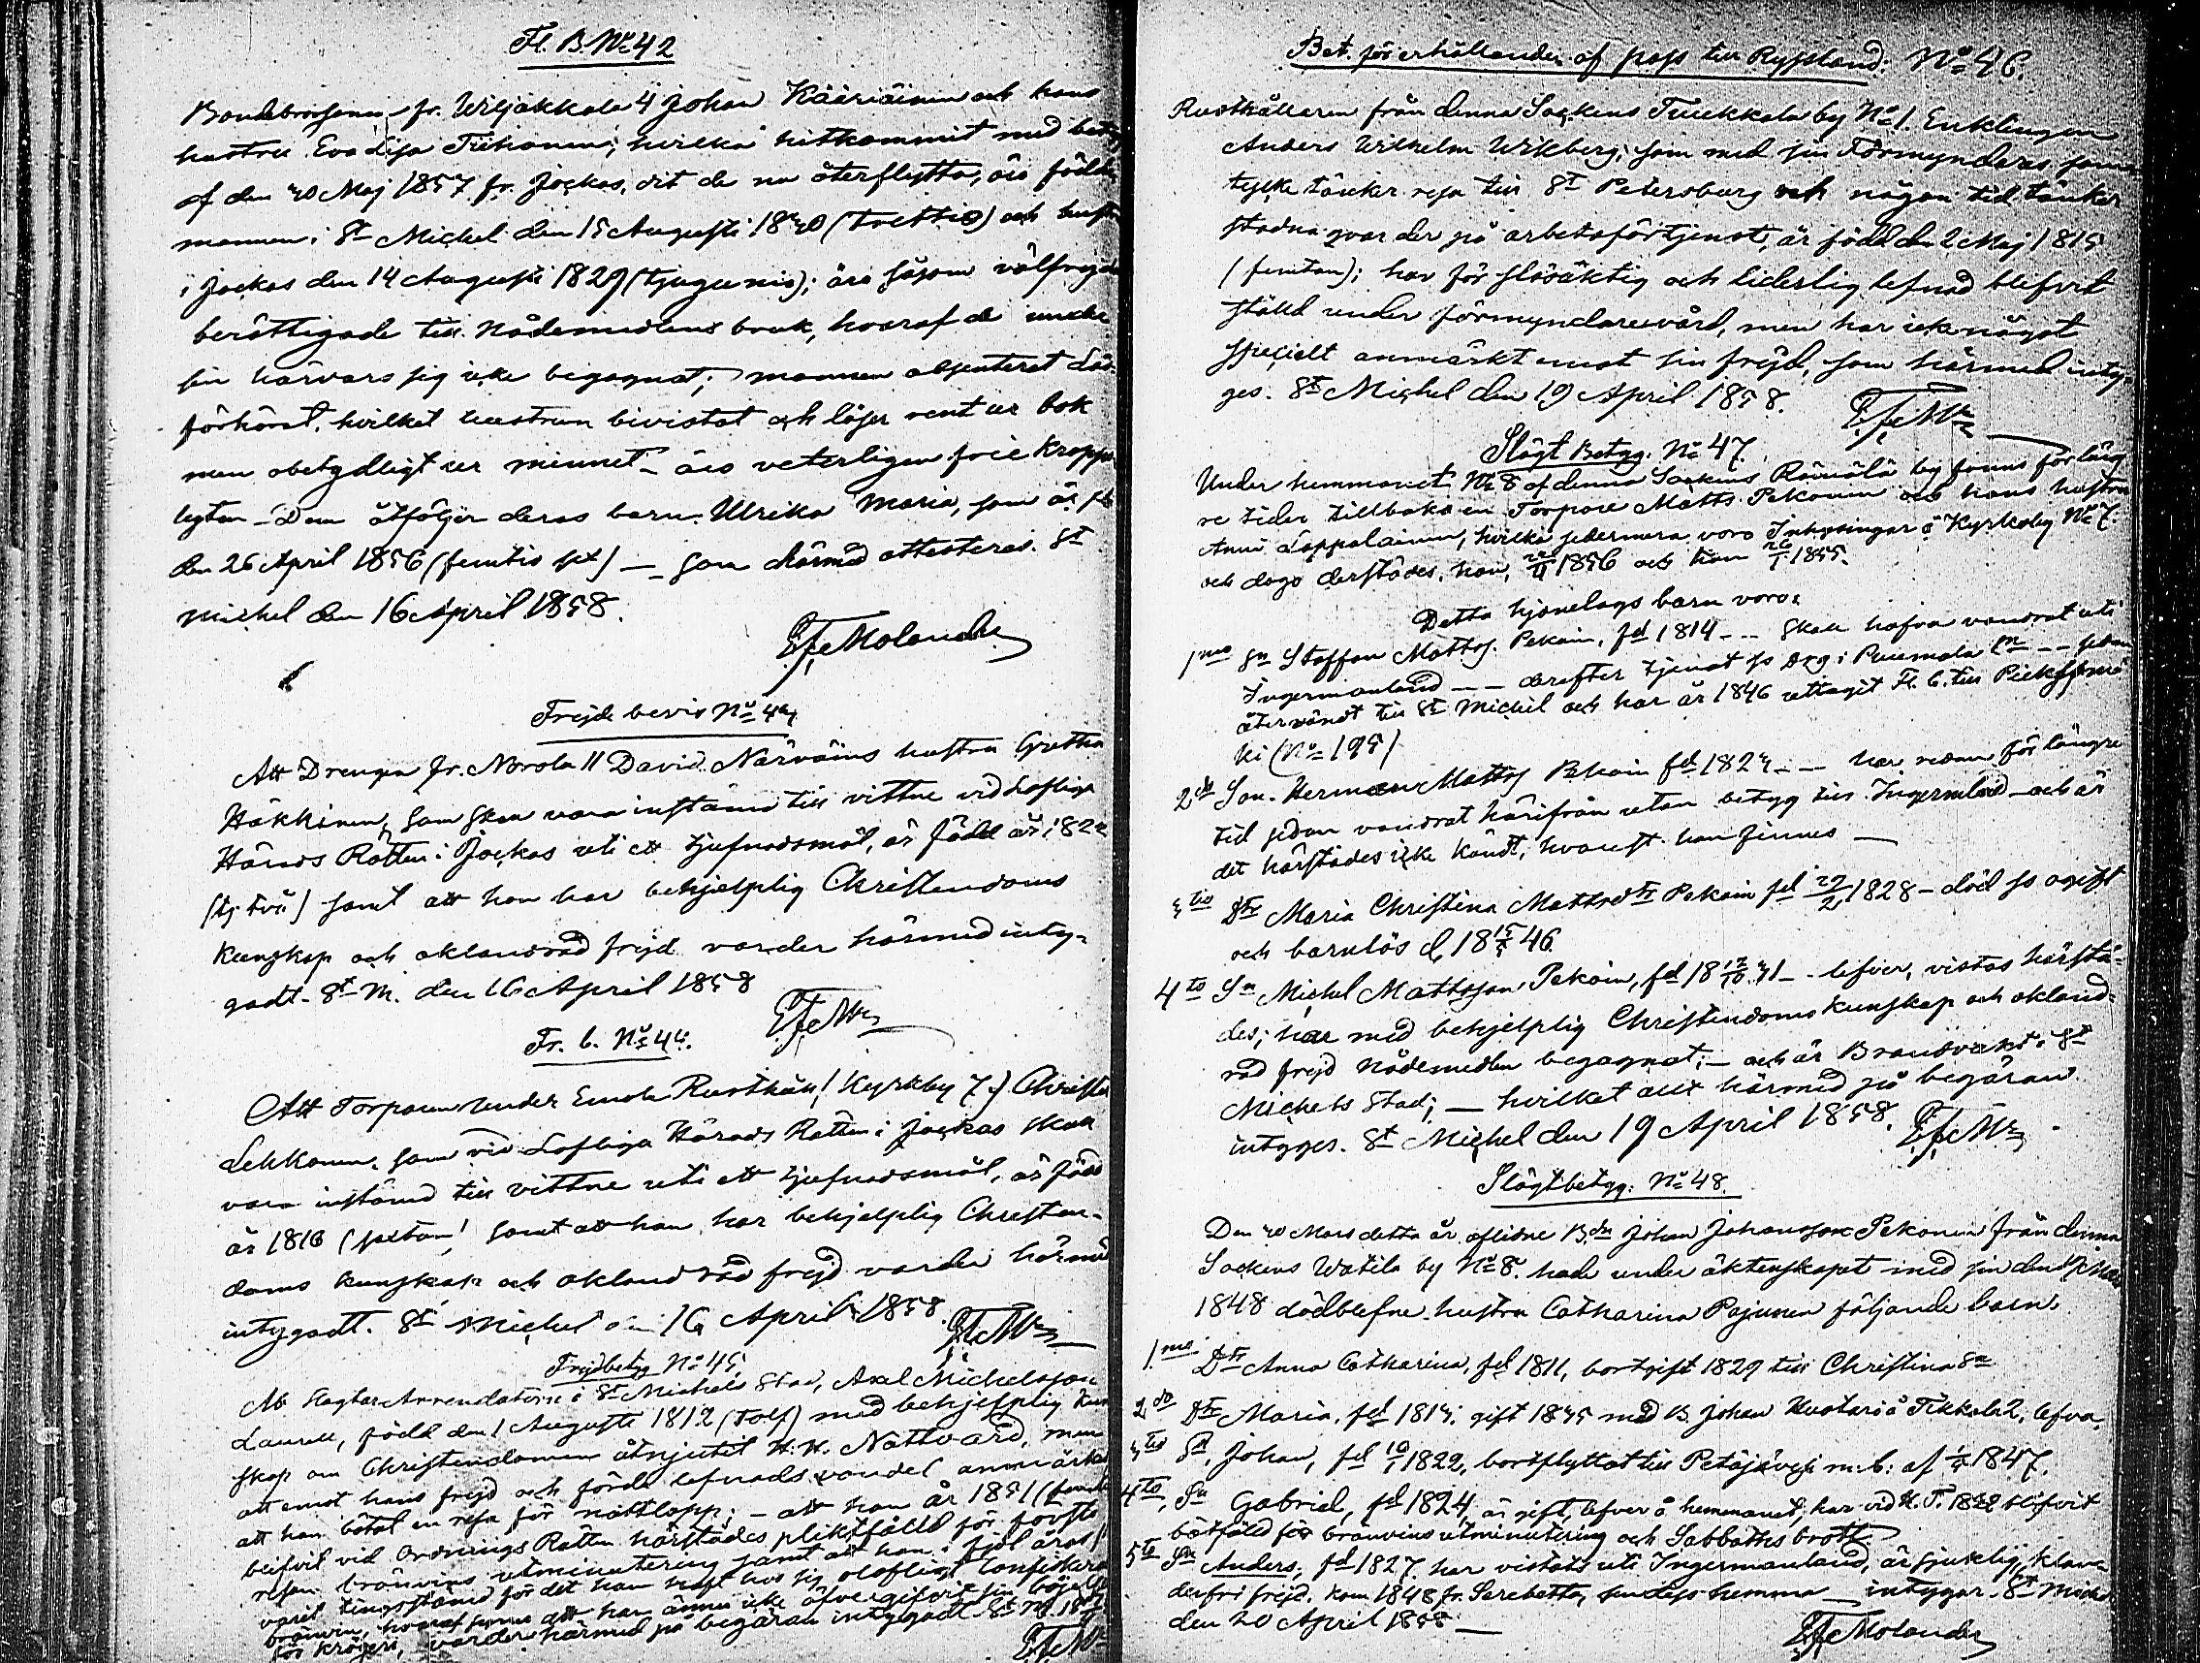 Fl. B. No 42
Bondebrorsonen fr. Wiljakkala 4 Johan Kääriäinen och hans
hustru Eva Lisa Tiihonen, hvilka hitkommit med betyg
af den 30 Maj 1857 fr. Jockas, dit de nu återflytta, äro födde
mannen i St Michel den 15 Augusti 1830 (trettio) och hustrun
i Jockas den 14 Augusti 1829 (tjugunio); äro såsom välfrejdade
berättigade till nådemedlens bruk, hvaraf de under
sin härvaro sig icke begagnat; mannen absenterat Läs-
förhöret, hvilket hustrun bivistat och läser rent ur bok
men obetydligt ur minnet – äro veterligen frie kropps
lyten – Dem åtföljer deras barn Ulrika Maria, som är född
den 26 April 1856 (femtio sex) — som härmed attesteras. St
Michel den 16 April 1858.
Molander
Frejdebevis No 43
Att Drengen fr. Norola 11 David Närväins hustru Gretha
Häkkinen, som skall vara instämd till vittne vid Lofliga
Härads Rätten i Jockas uti ett tjufnadsmål, är född år 1822
(tj. två) samt att hon har behjelplig Christendoms
kunskap och oklandrad frejd varder härmed inty-
gadt. St M. den 16 April 1858
Fr. b. No 44.
Att Torparen under Emola Rusthåll (Kyrkby 7) Christer
Lehkonen, som vid Lofliga Härads Rätten i Jockas skall
vara instämd till vittne uti ett tjufnadsmål, är född
år 1816 (sexton) samt att han har behjelplig Christen-
doms kunskap och oklandrad frejd varder härmed
intygadt. St Michel den 16 April 1858.
Frejdbetyg No 45
Att Arrendatorn i St Michels Stad, Axel Michelsson
Laurell, född den 1 Augusti 1812 (tolf) med behjelplig kun-
skap om Christendomen åtnjutit H. H. Nattvard, men
att emot hans frejd och förda lefnads vandel anmärkes
att han bötat en resa för ; – att han år 1851
blifvit vid Ordnings Rätten härstädes pliktfälld för första
resan brännvins utminutering samt att han i fjol äras
varit tingsstämd för det han haft hos sig olofligt
brännvin, att han ännu icke öfvergifvit sin böjelse
för krögeri, varder härmed på begäran intygadt. St M.
Bet. för erhållandet af pass till Ryssland. No 46.
Rusthållaren från denna Sockens Tuukkala by No 1. Enklingen
Anders Wilhelm Wikberg, som med sin Förmyndares sam-
tycke tänker resa till St Petersburg och någon tid tänker
stadna qvar der på arbetsförtjenst, är född den 2 Maj 1815
(femton); har för slösaktig och liderlig lefnad blifvit
ställd under förmyndarevård, men har icke något
specielt anmärkt emot sin frejd, som härmed inty-
ges. St Michel den 19 April 1858.
Slägt Betyg. No 47.
Under hemmanet No 8 af denna Sockens Räinälä by funnos för läng
re tider tillbaka en Torpare Matts Pekonen och hans hustru
Anni Lappalainen, hvilka sedermera voro Inhysingar å Kyrkoby No 7.
och dogo derstädes, han, 1856 och hon 1855.
Detta hjonelags barn voro:
1mo Sn Staffan Mattss. Pekoin, fd 1814 – – skall hafva vandrat uti
Ingermanland – – derefter tjenat ss Drg i Puumala – – sedan
återvändt till St Michel och har år 1846 uttagit Fl. b. till Pieksämä
ki (No 195)
2do Son Herman Mattss Pekoin fd 1823 – – har redan för längre
tid sedan vandrat härifrån utan betyg till Ingermland – och är
det härstädes icke kändt, hvarest han finnes —
3tio Dtr Maria Christina Mattsdtr Pekoin fd 22/2 1828 – död ss ogift
och barnlös d. 18 15/5 46
4to Sn Michel Mattsson Pekoin, fd 18 12/10 31 – lefver, vistas härstä-
des; har med behjelplig Christendoms kunskap och okland-
rad frejd nådemedlen begagnat; – och är Brandvakt i St
Michels Stad; — hvilket allt härmed på begäran
intyges. St Michel den 19 April 1858.
Slägtbetyg: No 48.
Den 30 Mars detta år aflidne Bdn Johan Johansson Pekonen från denna
Sockens Watila by No 8. hade under äktenskapet med sin den
1848 dödblefne hustru Catharina Pajunen följande barn.
1mo Dtr Anna Catharina, fd 1811, bortgift 1829 till Christina
2do Dtr Maria, fd 1813; gift 1835 med B. Johan Kustari å Tikkala 2, lefva,
3tio Sn Johan, fd 10/1 1822, bortflyttat till Petäjävesi m. b. af 1847.
4to Sn Gabriel, fd 1824, är gift, lefver å hemmanet; har vid H. T. blifvit
bötfäld för brännvins utminutering och Sabbaths brott.
5te Sn Anders, fd 1827, har vistats uti Ingermanland, är sjuklig, klan-
derfri frejd, kom 1848 fr. , hemma — intygar. St Michel
den 20 April 1858 —
Molander